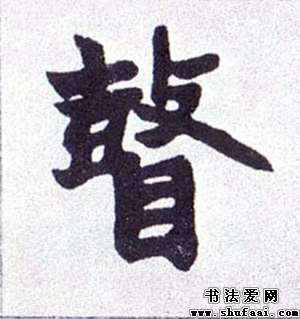 瞽
书法爱网
www.shufaai.com